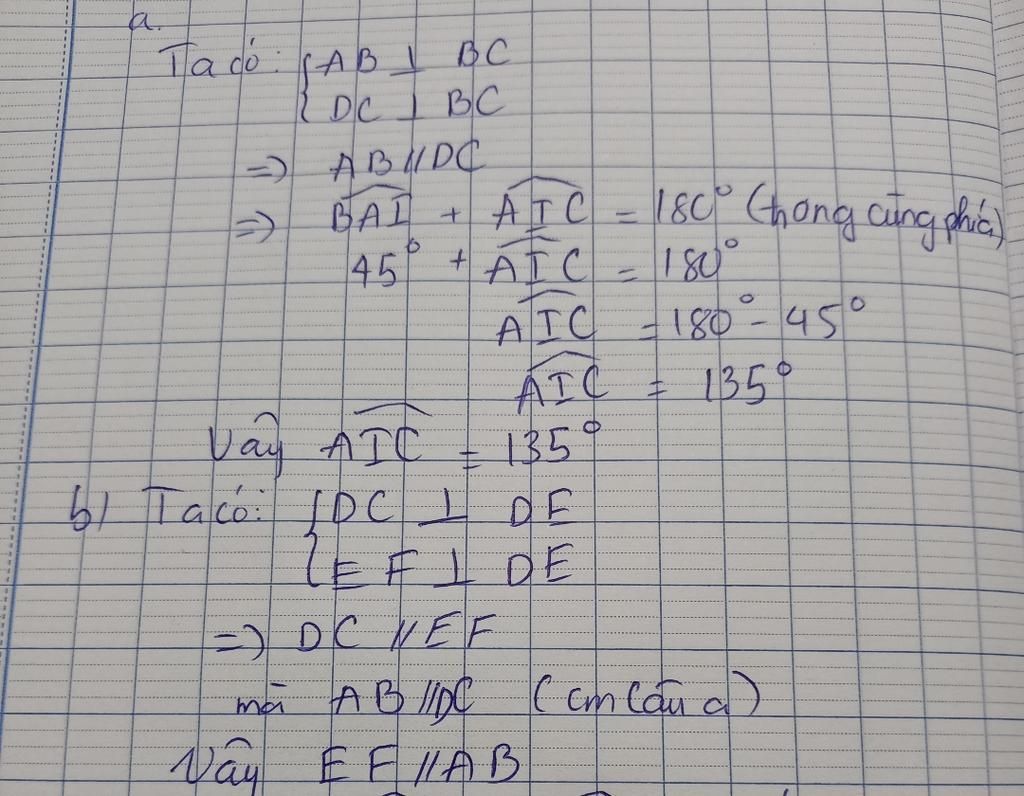 a.
Ta có: { AB ⊥ BC
DC ⊥ BC
=> AB // DC
=> BAI + AIC = 180° (trong cùng phía)
45° + AIC = 180°
AIC = 180° - 45°
AIC = 135°
Vậy AIC = 135°
b) Ta có: { DC ⊥ DE
EF ⊥ DE
=> DC // EF
mà AB // DC (cm câu a)
Vậy EF // AB